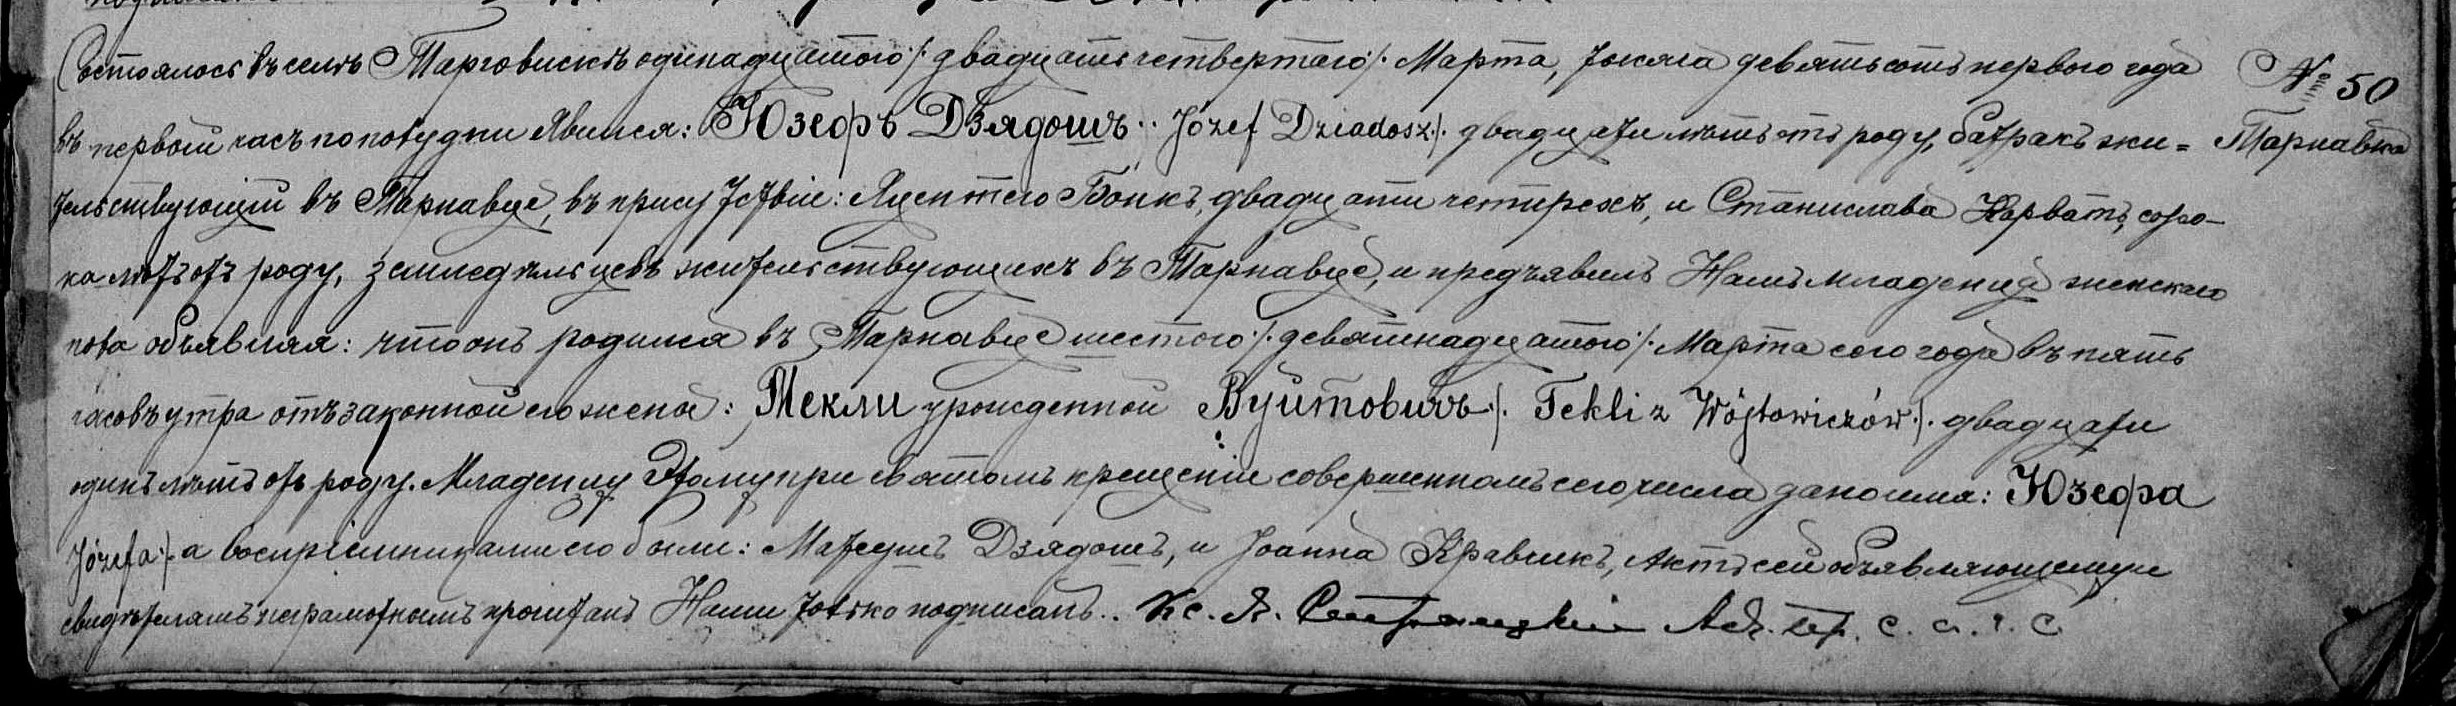 Состоялось въ селѣ Тарговискѣ одинадцатого /: двадцать четвертаго :/ Марта, тысяча девятьсотъ первого года № 50
въ первой часъ по полудни Явился: Юзефъ Дзядошъ /: Józef Dziadosz :/ двадцати лѣтъ отъ роду, батракъ жи= Тарнавка
тельствующій въ Тарнавце, въ присутствіи: Яцентего Бонкъ, двадцати четирехъ, и Станислава Карватъ, соро-
ка лѣтъ отъ роду, земледѣльцевъ жительствующихъ въ Тарнавце, и предъявилъ Намъ младенца женскаго
пола объявляя: что онъ родился въ Тарнавце шестого /: девятнадцатого :/ Марта сего года въ пять
часовъ утра отъ законной его жены: Текли урожденной Вуйтовичъ /: Tekli z Wójtowiczów :/ двадцати
одинъ лѣтъ отъ роду. Младенцу Этому при святомъ крещеніи совершенномъ сего числа дано имя: Юзефа
Józefa :/ а воспріемниками его были: Матеушъ Дзядошъ, и Joанна Кравчикъ, Актъ сей объявляющему и
свидѣтелямъ неграмотнымъ прочитанъ Нами только подписанъ.. Кс. А. Адм. пр. С. а. г. С.